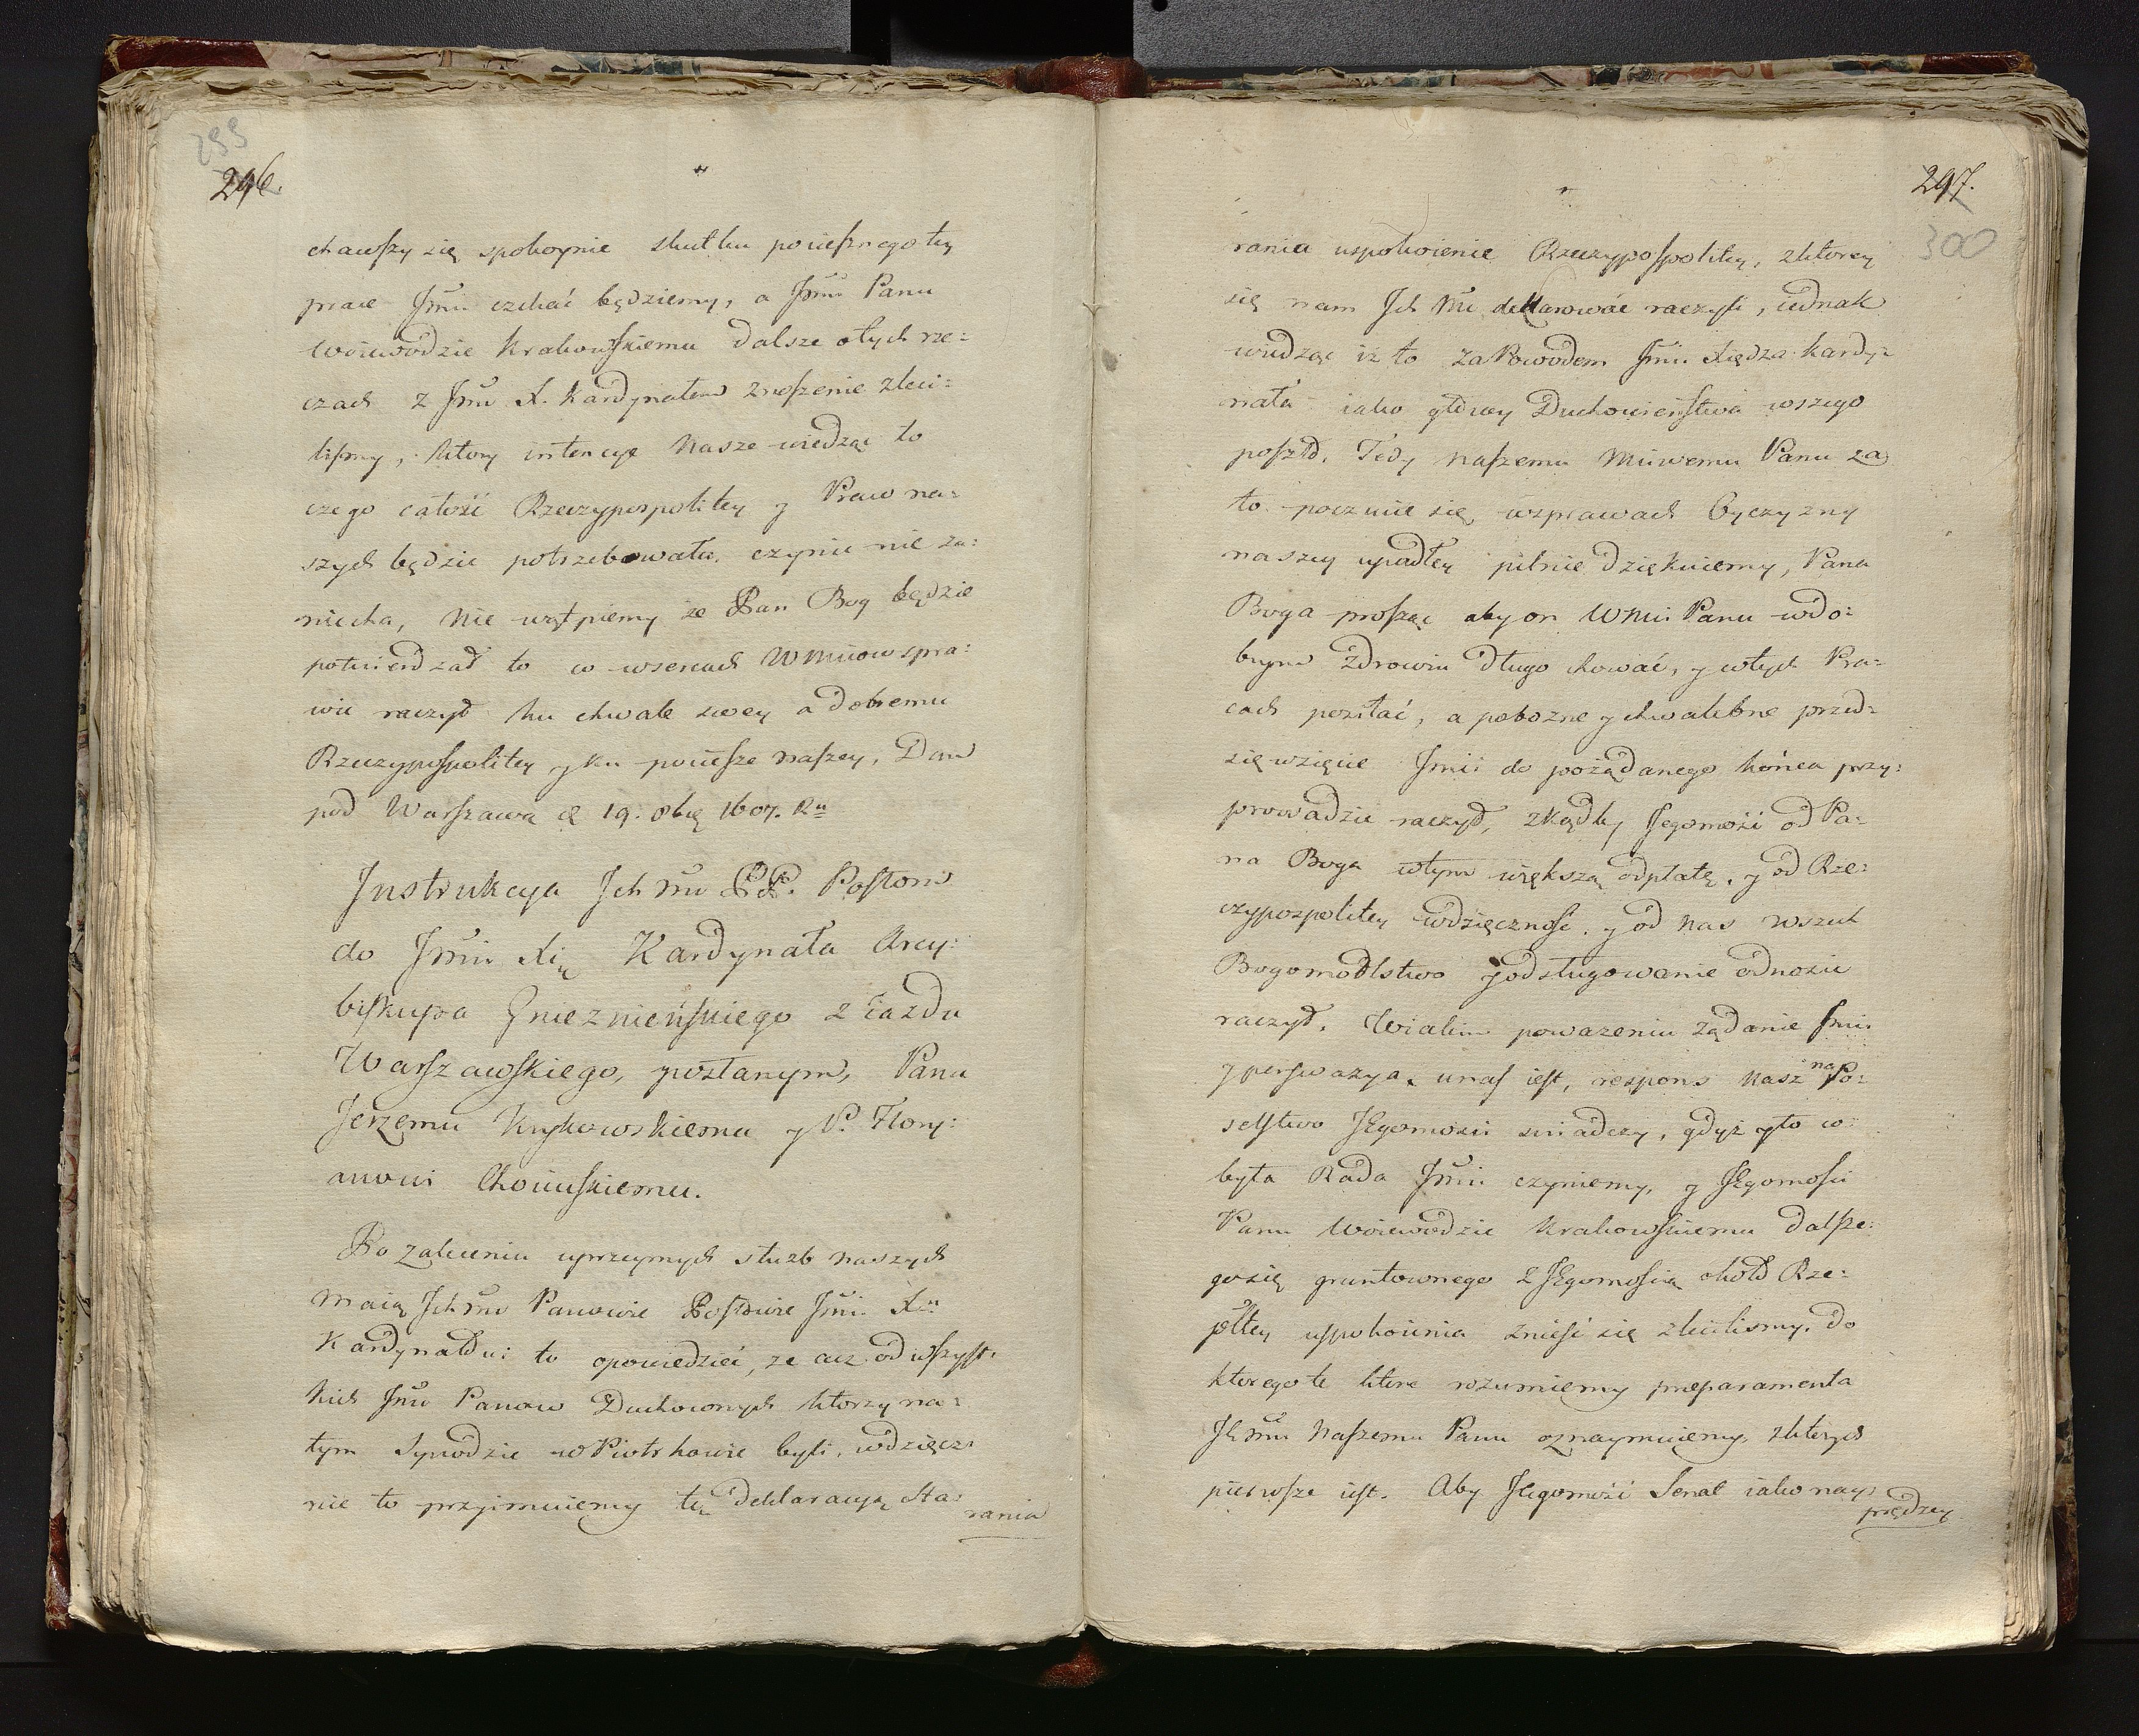 299
296.
chawszy się spokoynie skutku pociesznego tey
prace Jmci czekać będziemy, a Jmci Panu
Woiewodzie Krakowskiemu dalsze otych rze=
czach z Jmć X. Kardynałem znoszenie zleci=
lismy, ktory intencye nasze wiedząc to
czego całość Rzeczypospolitey y Praw na=
szych będzie potrzebowała, czynić nie za=
niecha, Nie wątpiemy że Pan Bog będzie
potwierdzał to w sercach WMciow spra=
wić raczył ku chwale swey a dobremu
Rzeczypospolitey y ku pociesze naszey, Dan
pod Warszawą d 19. 8bię 1607. Ru
Instrukcya Ich Mć PP. Posłom
do Jmci Xię Kardynała Arcy=
biskupa Gnieznieńskiego z Ziazdu
Warszawskiego, posłanym, Panu
Jerzemu Krykowskiemu y P. Flory=
anowi Choiuskiemu.
Po zaleceniu uprzeymych służb naszych
maią Ich Mć Panowie Posłowie Jmci Xu
Kardynałowi to opowiedzieć, ze acz od wszyst=
kich Jmć Panow Duchownych ktorzy na=
tym Synodzie w Piotrkowie byli, wdzięcz=
nie to przyimuiemy tę deklaracyą sta=
rania
297.
300
rania uspokoienie Rzeczypospolitey, zktorey
się nam Ich Mć deklarować raczyli, iednak
widząc iż to za Powodem Jmci Xiędza Kardy=
nała iako głowy Duchowieństwa wszego
poszło. Tedy naszemu Mciwemu Panu za
to poczucie się wsprawach Oyczyzny
naszey upadłey pilnie dziękuiemy, Pana
Boga prosząc aby on WMci Panu wdo=
brym zdrowiu długo chować, y wtych Pra=
cach posilać, a pobozne y chwalebne przed=
sięwzięcie Jmci do pożądanego końca przy=
prowadzić raczył, zkądby Jegomość od Pa=
na Boga wtym większą odpłatę, y od Rze=
czypospolitey wdzięczność, y od nas wszech
Bogomodlstwo y odsługowanie odnosić
raczył. Wiakim powazeniu żądanie Jmci
y perswazya unas iest, respons nasz na Po=
selstwo JEgomości swiadczy, gdyż y to co
była Rada Jmci czyniemy, y JEgomości
Panu Woiewodzie Krakowskiemu dalsze=
go się gruntownego z JEgomością około Rze=
pltey uspokoienia znieść się zleciliśmy. Do
ktorego te ktore rozumiemy preparamenta
Jchmu Naszemu Panu oznaymuiemy, zktorych
pierwsze iest. Aby JEgomość Senat iako nay=
prędzey